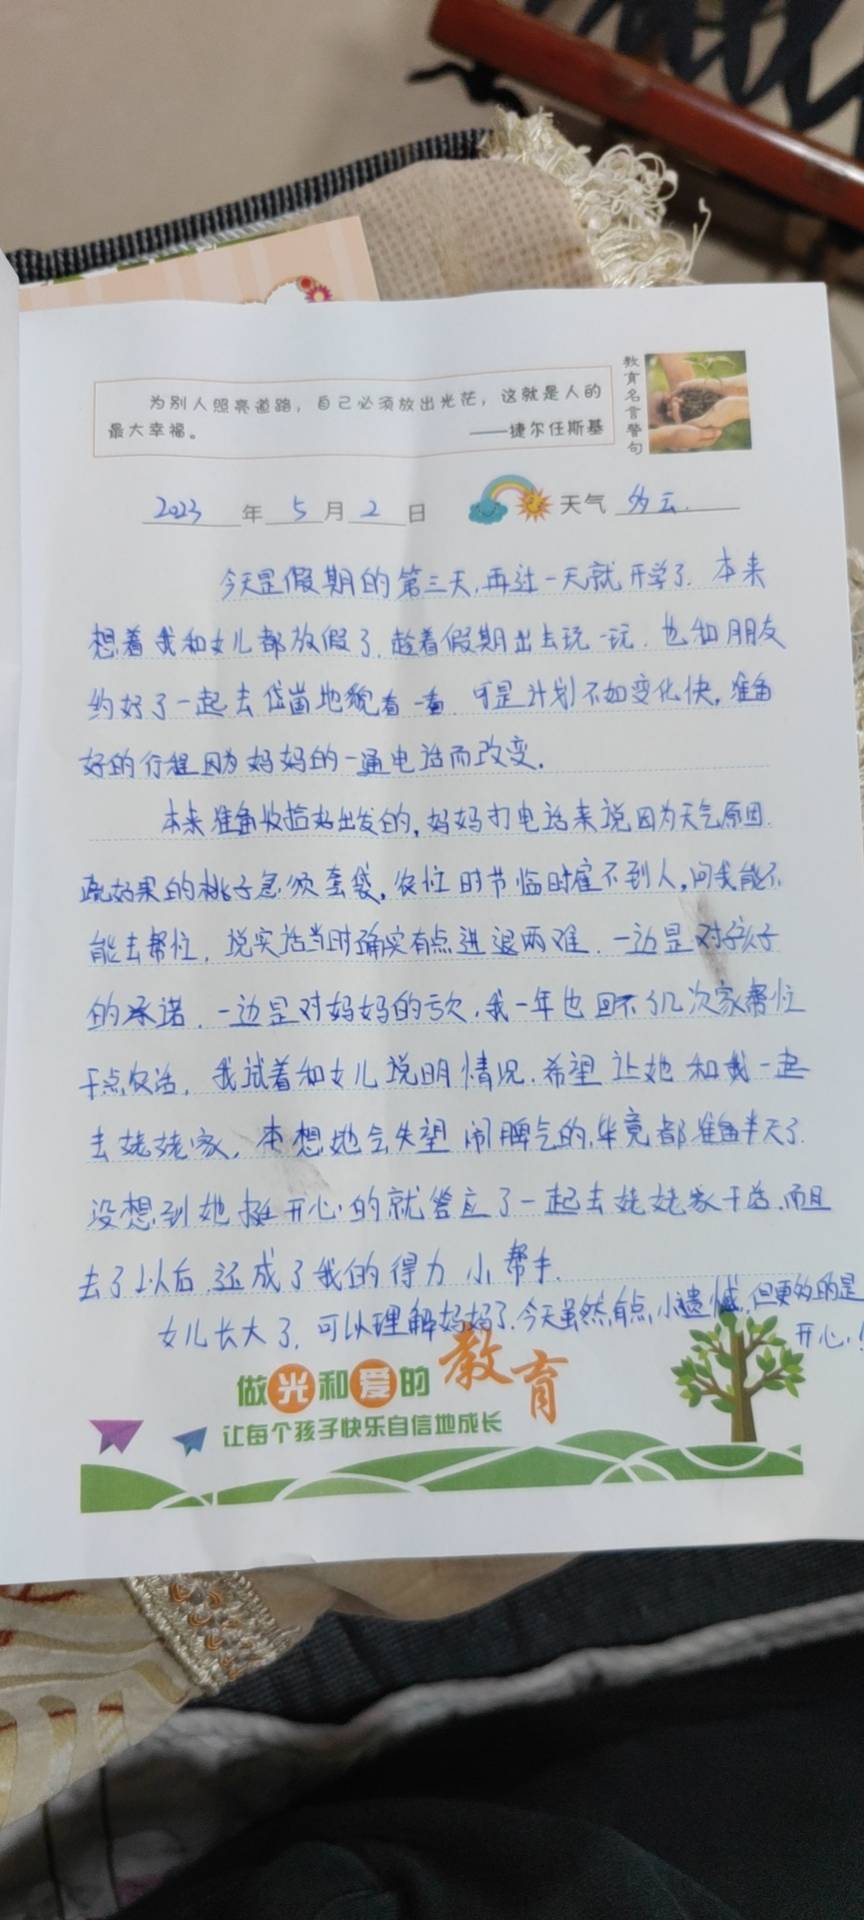 为别人照亮道路，自己必须放出光茫，这就是人的
最大幸福。
——捷尔任斯基
教育名言警句
2023年5月2日 天气 多云.
今天是假期的第三天,再过一天就开学了.本来
想着我和女儿都放假了.趁着假期出去玩一玩.也和朋友
约好了一起去岱崮地貌看一看.可是计划不如变化快,准备
好的行程因为妈妈的一通电话而改变.
本来准备收拾好出发的,妈妈打电话来说因为天气原因.
蔬好果的桃子急须套袋,农忙时节临时雇不到人,问我能不
能去帮忙.说实话当时确实有点进退两难.一边是对孩子
的承诺.一边是对妈妈的亏欠.我一年也回不了几次家帮忙
干点农活.我试着和女儿说明情况.希望让她和我一起
去姥姥家.本想她会失望闹脾气的.毕竟都准备半天了.
没想到她挺开心的就答应了一起去姥姥家干活.而且
去了以后.还成了我的得力小帮手.
女儿长大了.可以理解妈妈了.今天虽然有点小遗憾.但更多的是
开心!
做光和爱的教育
让每个孩子快乐自信地成长